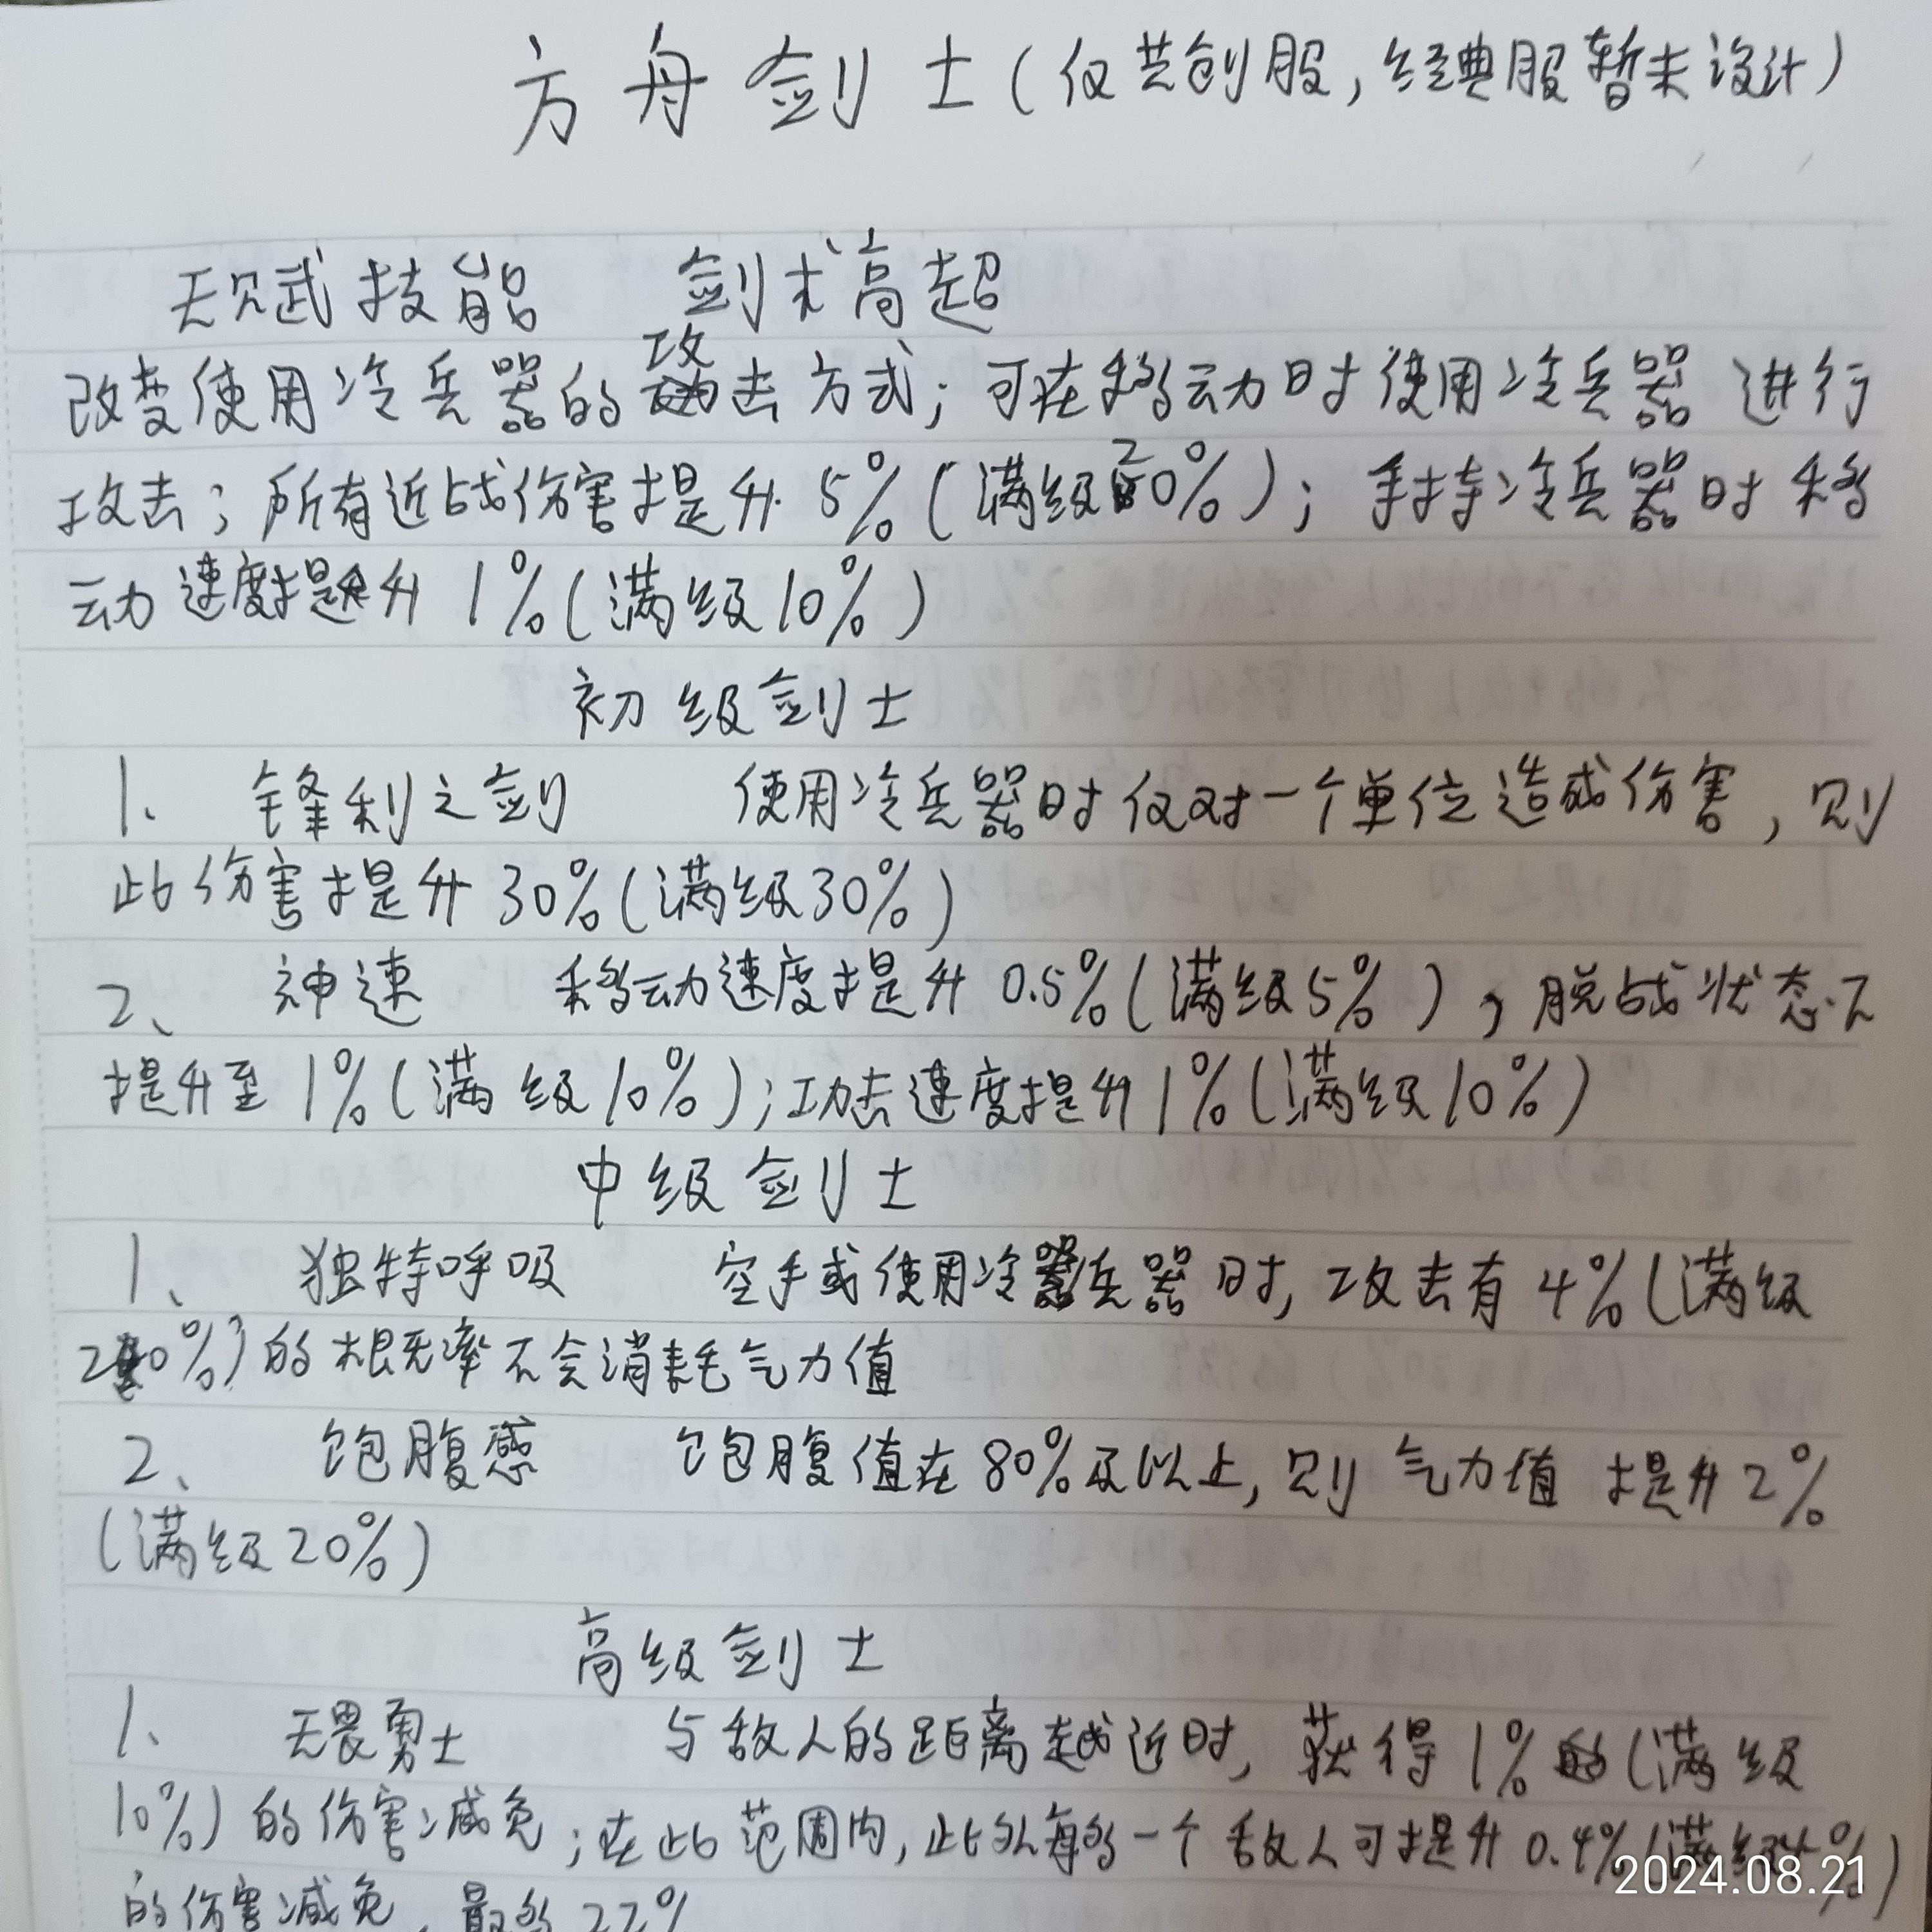 方舟剑士(仅共创服,经典服暂未设计)
天赋技能 剑术高超
改变使用冷兵器的攻击方式;可在移动时使用冷兵器进行
攻击;所有近战伤害提升5%(满级20%);手持冷兵器时移
动速度提升1%(满级10%)
初级剑士
1、 锋利之剑 使用冷兵器时仅对一个单位造成伤害,则
此伤害提升30%(满级30%)
2、 神速 移动速度提升0.5%(满级5%),脱战状态下
提升至1%(满级10%);功击速度提升1%(满级10%)
中级剑士
1、 独特呼吸 空手或使用冷兵器时,攻击有4%(满级
20%)的概率不会消耗气力值
2、 饱腹感 饱腹值在80%及以上,则气力值提升2%
(满级20%)
高级剑士
1、 无畏勇士 与敌人的距离越近时,获得1%(满级
10%)的伤害减免;在此范围内,此外每多一个敌人可提升0.4%(满级%)
的伤害减免,最多22%
2024.08.21